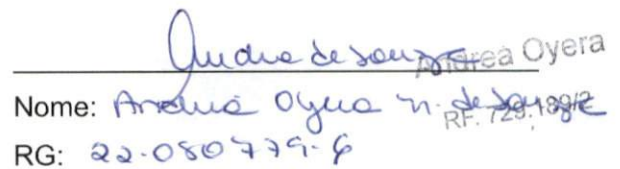 Andrea de Souza
Andrea Oyera
Nome: Andrea Oyera N. de Souza
RF. 729.189/2
RG: 22.080779-6